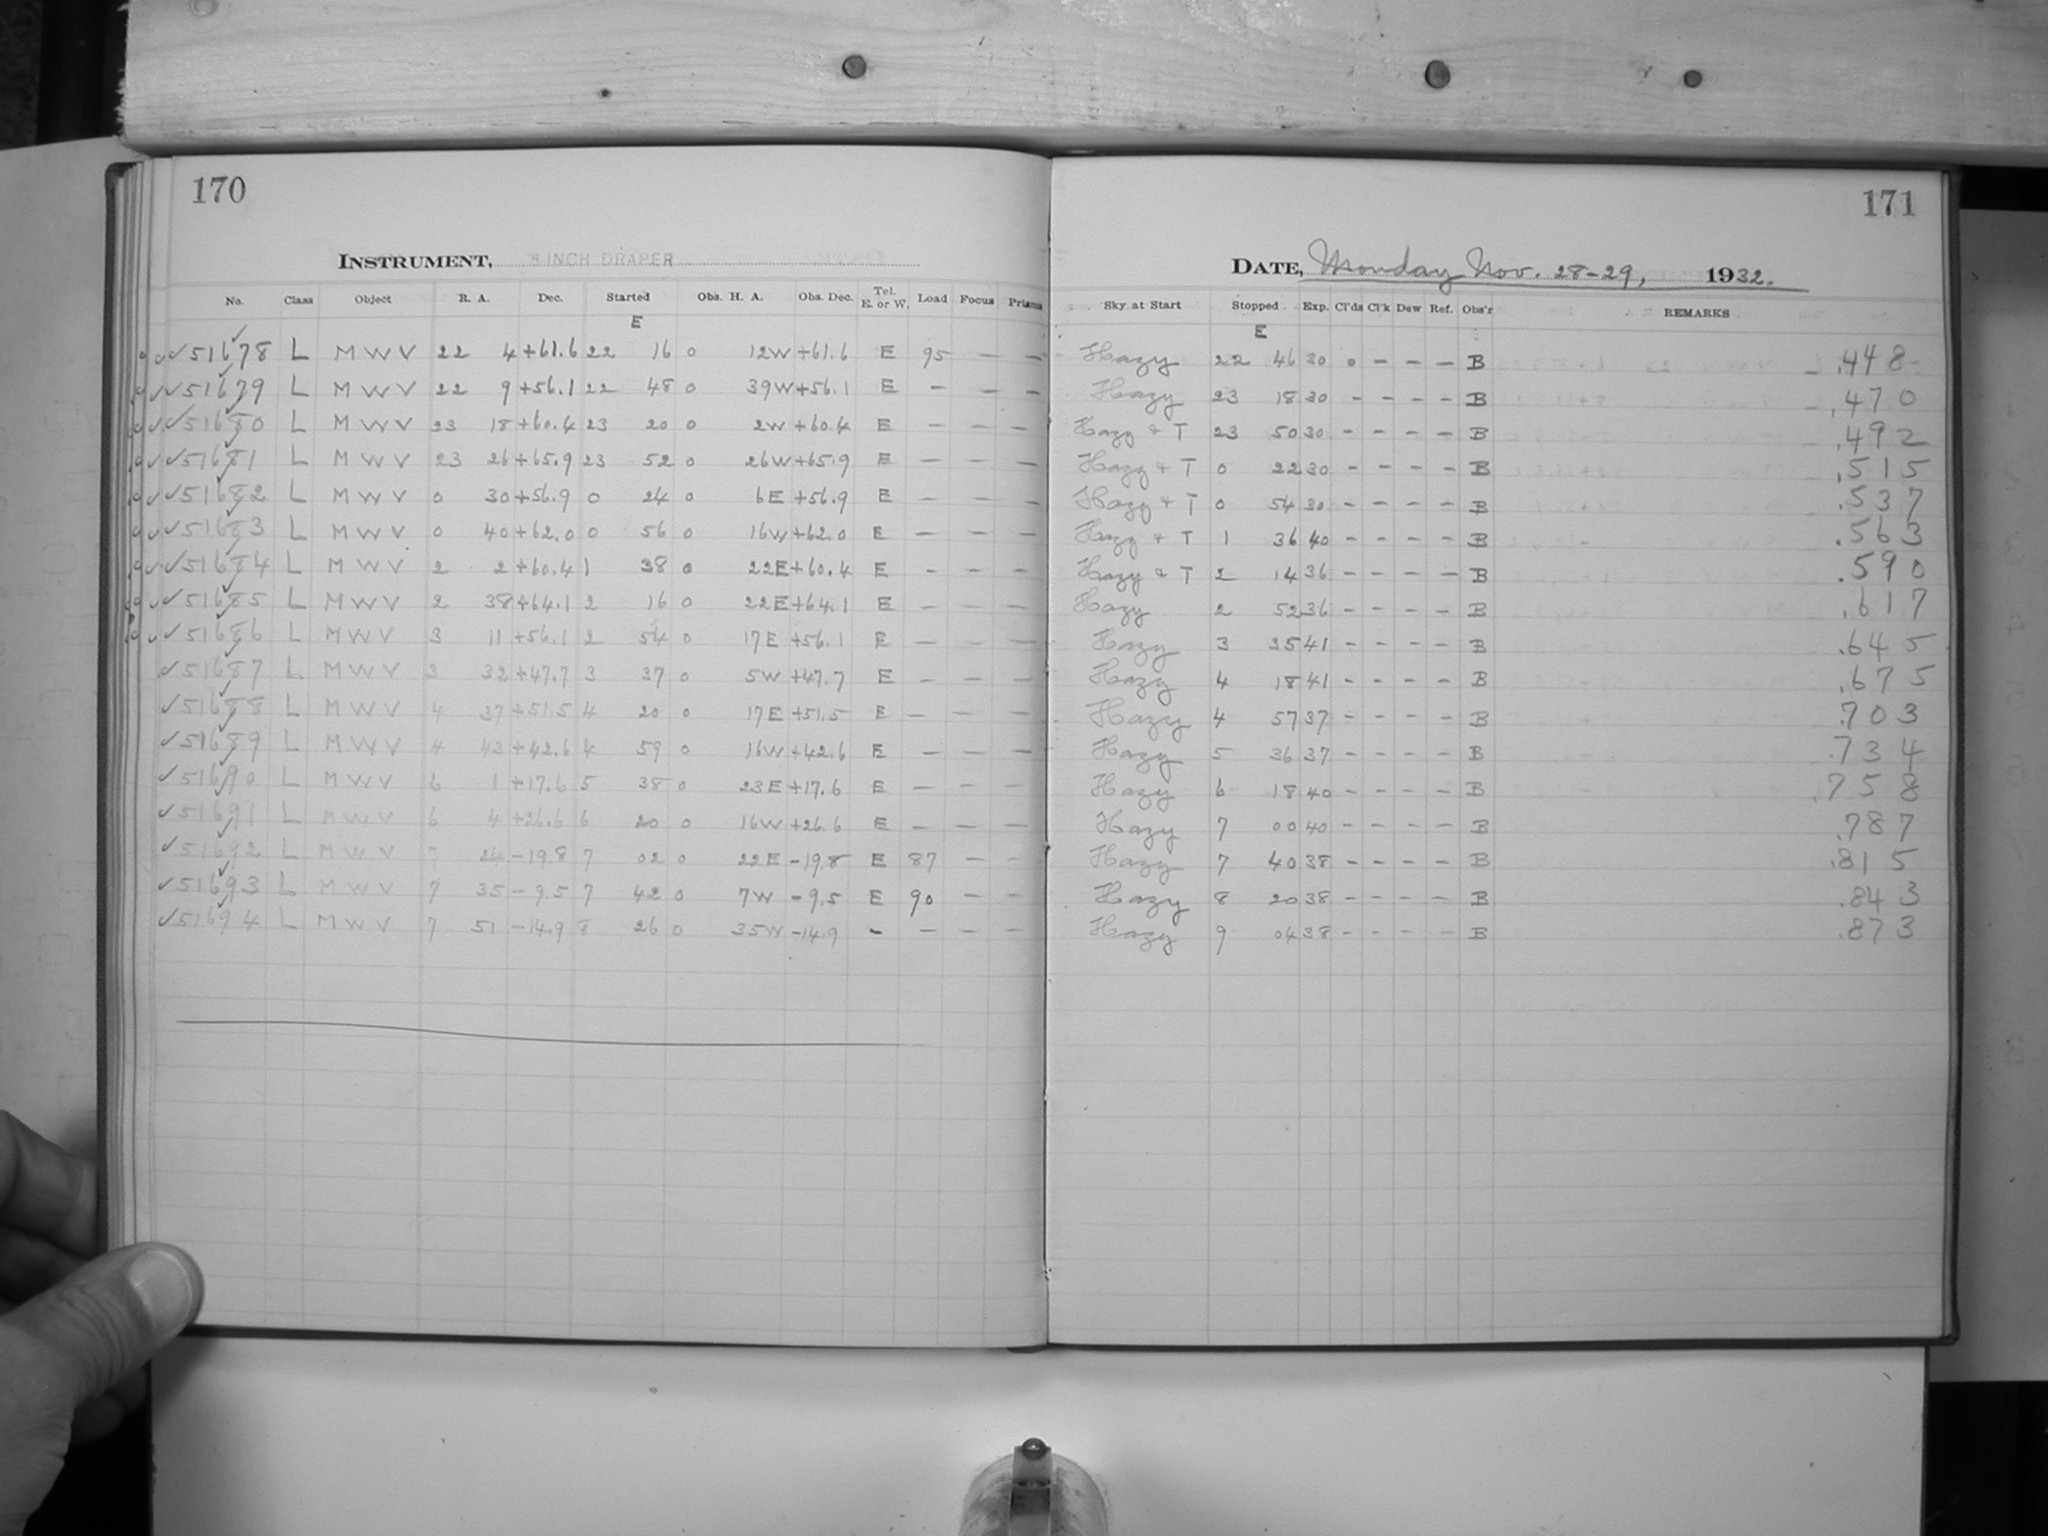 170
INSTRUMENT, 8 INCH DRAPER
No. Class Object R. A. Dec. Started Obs. H. A. Obs. Dec. Tel. E. or W. Load Focus Prisms
E
51678 L MWV 22 4 +61.6 22 16 0 12W +61.6 E 95 — —
51679 L MWV 22 9 +56.1 22 48 0 39W +56.1 E — — —
51680 L MWV 23 18 +60.4 23 20 0 2W +60.4 E — — —
51681 L MWV 23 26 +65.9 23 52 0 26W +65.9 E — — —
51682 L MWV 0 30 +56.9 0 24 0 6E +56.9 E — — —
51683 L MWV 0 40 +62.0 0 56 0 16W +62.0 E — — —
51684 L MWV 2 2 +60.4 1 38 0 22E +60.4 E — — —
51685 L MWV 2 38 +64.1 2 16 0 22E +64.1 E — — —
51686 L MWV 3 11 +56.1 2 54 0 17E +56.1 E — — —
51687 L MWV 3 32 +47.7 3 37 0 5W +47.7 E — — —
51688 L MWV 4 37 +51.5 4 20 0 17E +51.5 E — — —
51689 L MWV 4 43 +42.6 4 59 0 16W +42.6 E — — —
51690 L MWV 6 1 +17.6 5 38 0 23E +17.6 E — — —
51691 L MWV 6 4 +26.6 6 20 0 16W +26.6 E — — —
51692 L MWV 7 24 -19.8 7 02 0 22E -19.8 E 87 — —
51693 L MWV 7 35 -9.5 7 42 0 7W -9.5 E 90 — —
51694 L MWV 7 51 -14.9 8 26 0 35W -14.9 - — — —
171
DATE, Monday Nov. 28-29, 1932.
Sky at Start Stopped Exp. Cl'ds Cl'k Dew Ref. Obs'r REMARKS
E
Hazy 22 46 30 0 - - - B .448
Hazy 23 18 30 - - - - B .470
Hazy + T 23 50 30 - - - - B .492
Hazy + T 0 22 30 - - - - B .515
Hazy + T 0 54 30 - - - - B .537
Hazy + T 1 36 40 - - - - B .563
Hazy + T 2 14 36 - - - - B .590
Hazy 2 52 36 - - - - B .617
Hazy 3 35 41 - - - - B .645
Hazy 4 18 41 - - - - B .675
Hazy 4 57 37 - - - - B .703
Hazy 5 36 37 - - - - B .734
Hazy 6 18 40 - - - - B .758
Hazy 7 00 40 - - - - B .787
Hazy 7 40 38 - - - - B .815
Hazy 8 20 38 - - - - B .843
Hazy 9 04 38 - - - - B .873